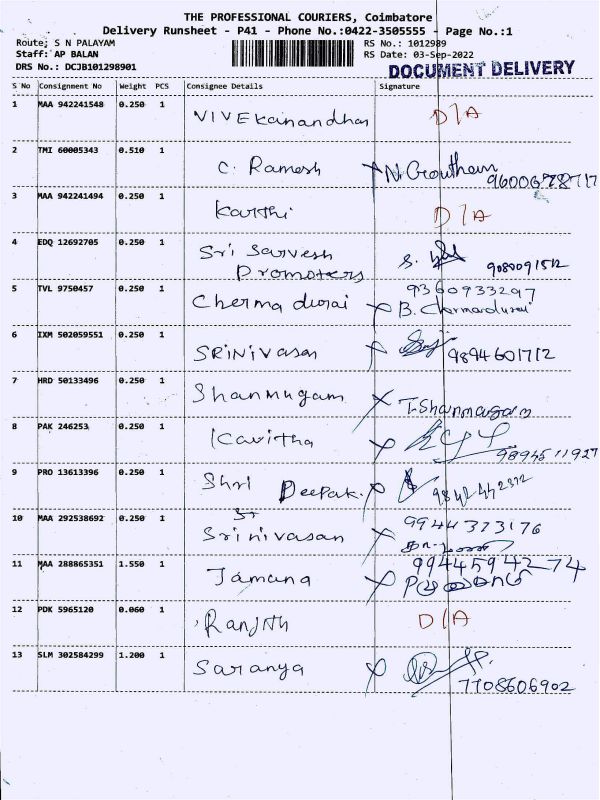 THE PROFESSIONAL COURIERS, Coimbatore
Delivery Runsheet - P41 - Phone No.:0422-3505555 - Page No.:1
Route: S N PALAYAM RS No.: 1012989
Staff: AP BALAN RS Date: 03-Sep-2022
DRS No.: DCJB101298901 DOCUMENT DELIVERY
S No Consignment No Weight PCS Consignee Details Signature
1 MAA 942241548 0.250 1 VIVEKanandhan D/A
2 TMI 60005343 0.510 1 C. Ramesh N. Groutham
3 MAA 942241494 0.250 1 Karthi D/A
4 EDQ 12692705 0.250 1 Sri Sarvesh
Promoters
5 TVL 9750457 0.250 1 Cherma durai 9360933297
B. Chermadurai
6 IXM 502059551 0.250 1 SRINIVASAN 9894601712
7 HRD 50133496 0.250 1 Shanmugam T. Shanmugam
8 PAK 246253 0.250 1 Kavitha
9894511927
9 PRO 13613396 0.250 1 Shri Deepak.
10 MAA 292538692 0.250 1 Srinivasan 9944373176
11 MAA 288865351 1.550 1 Jamuna
12 PDK 5965120 0.060 1 Ranjith D/A
13 SLM 302584299 1.200 1 Saranya
7708606902